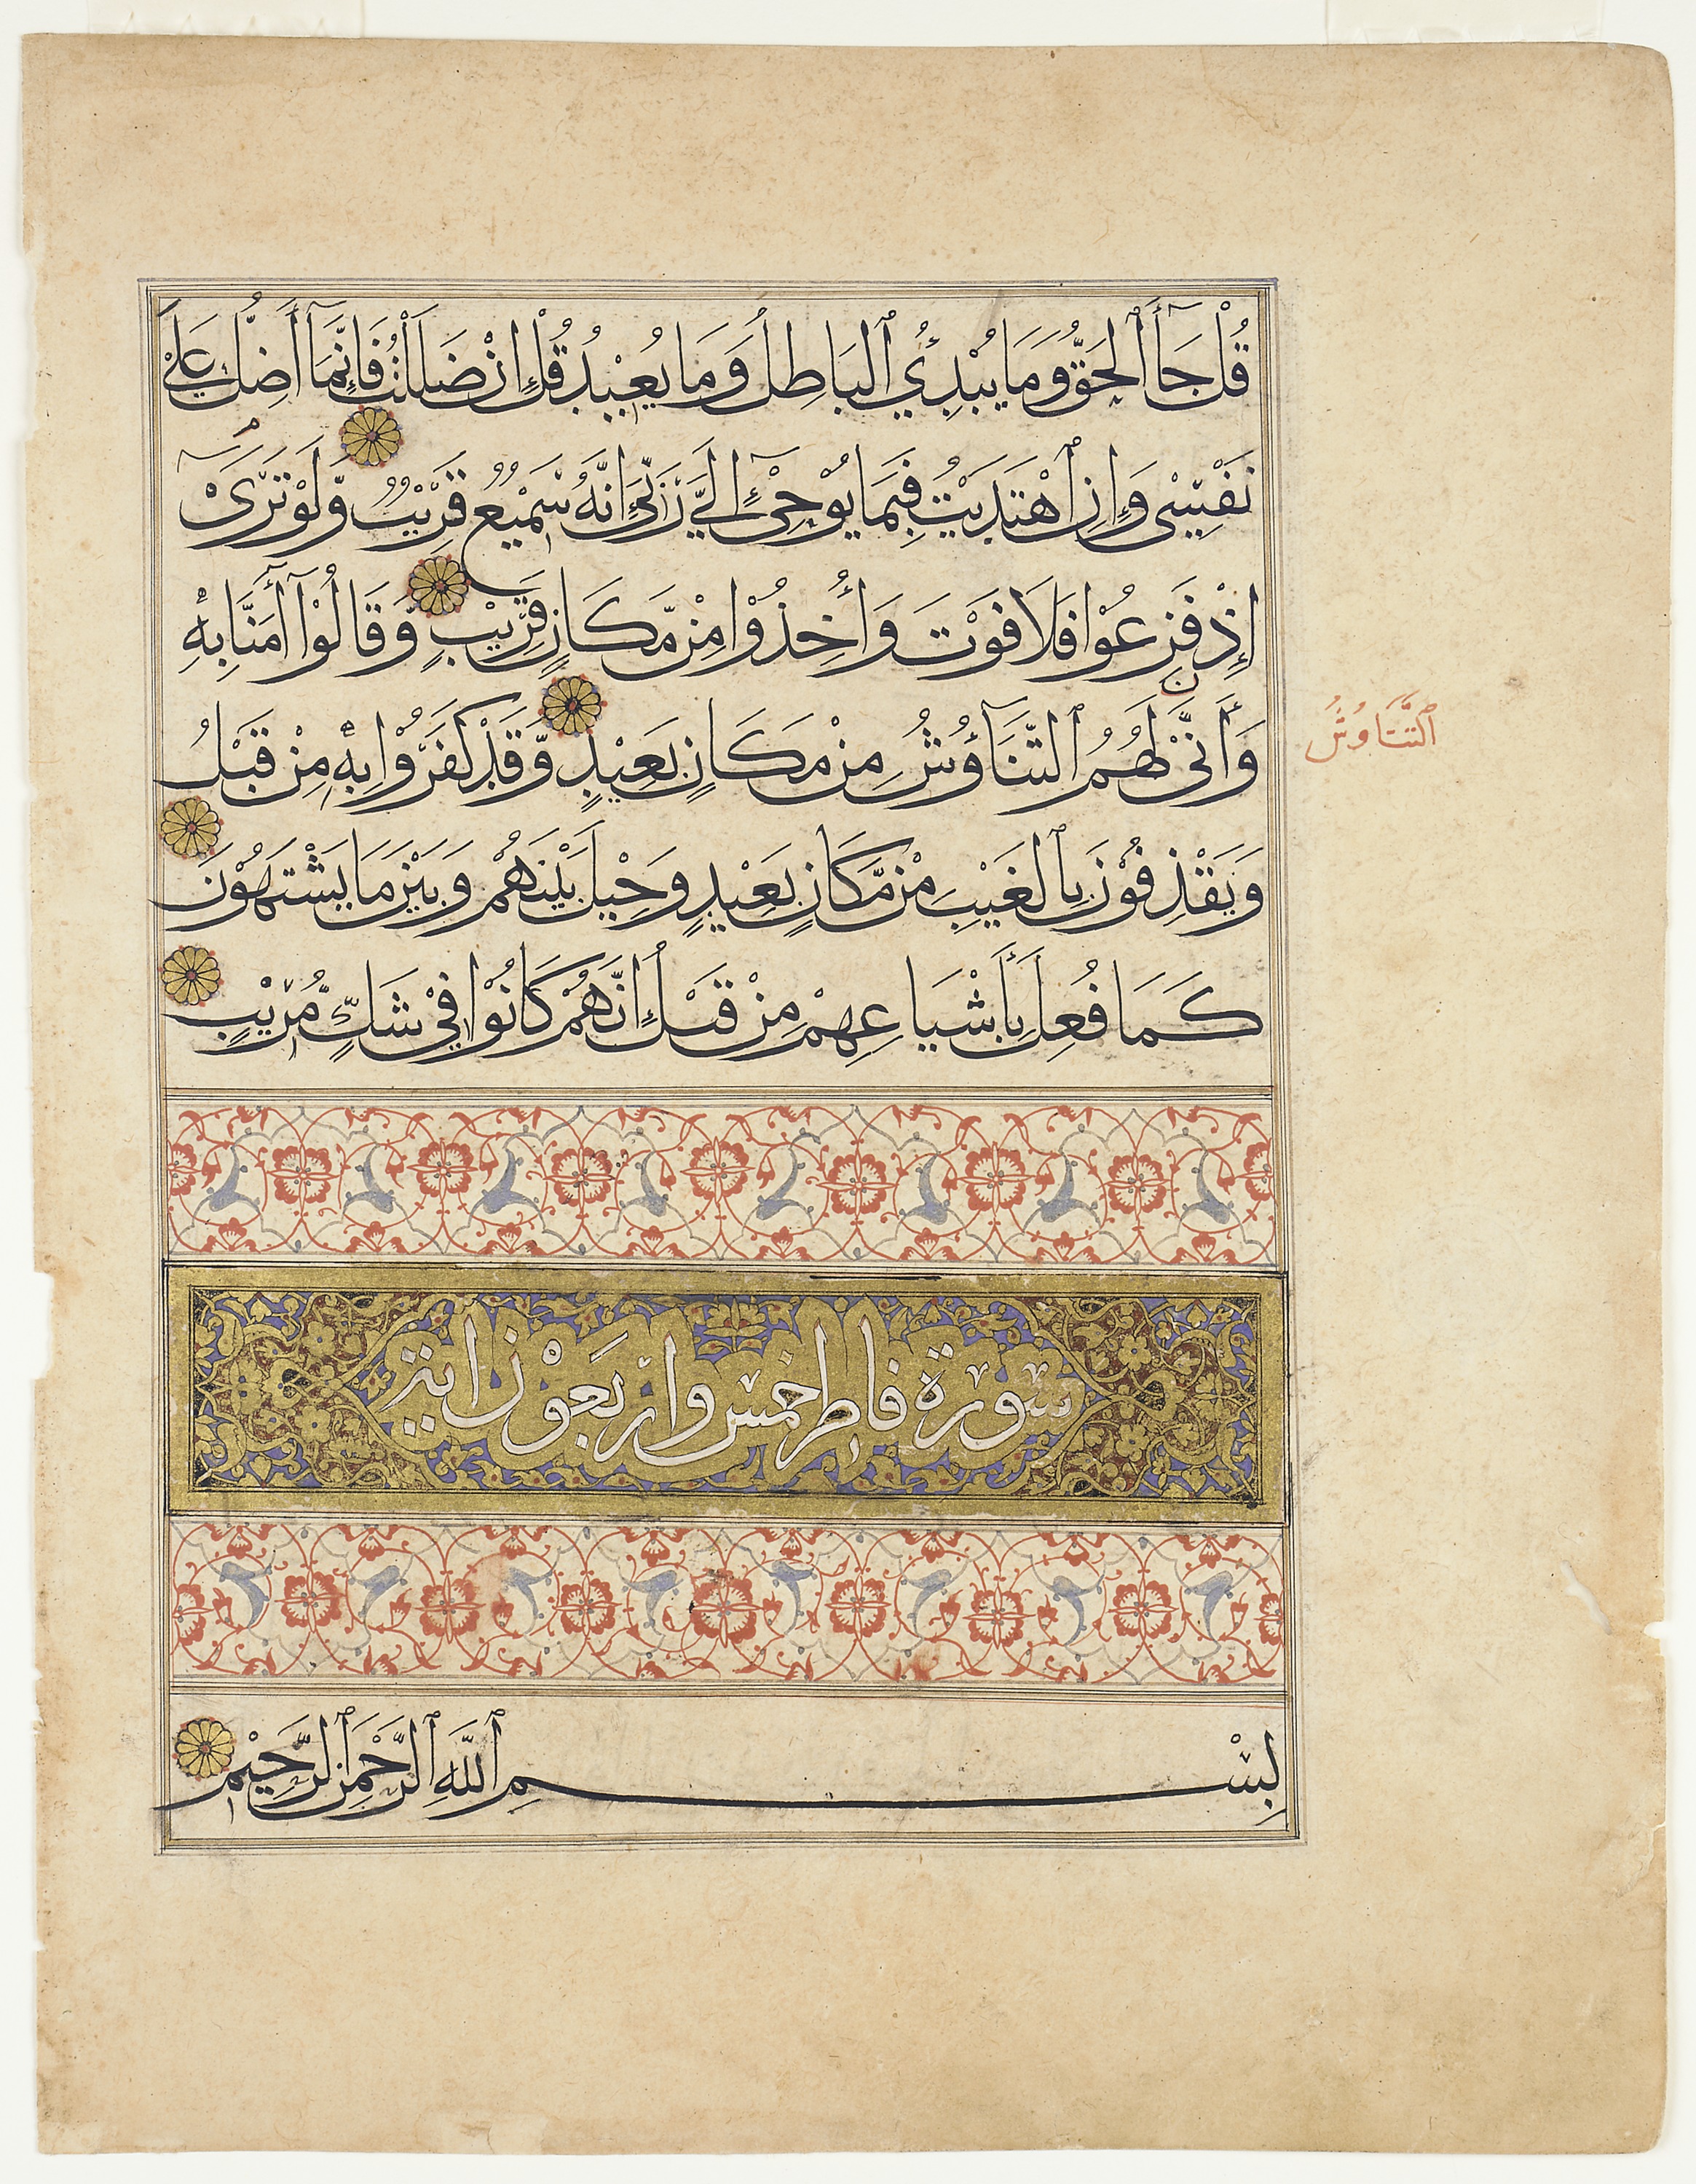 قُلْ جَآءَ ٱلْحَقُّ وَمَا يُبْدِئُ ٱلْبَاطِلُ وَمَا يُعِيْدُ قُلْ إِنْ ضَلَلْتُ فَإِنَّمَآ أَضِلُّ عَلَىٰ
نَفْسِيْ وَإِنِ ٱهْتَدَيْتُ فَبِمَا يُوْحِيْ إِلَيَّ رَبِّيْ إِنَّهُ سَمِيْعٌ قَرِيْبٌ وَّلَوْ تَرَىٰٓ
إِذْ فَزِعُوْا فَلَا فَوْتَ وَأُخِذُوْا مِنْ مَّكَانٍ قَرِيْبٍ وَّقَالُوْٓا آمَنَّا بِهِ
وَأَنَّىٰ لَهُمُ ٱلتَّنَآؤُشُ مِنْ مَكَانٍ بَعِيْدٍ وَّقَدْ كَفَرُوْا بِهِ مِنْ قَبْلُ
ٱلتَّنَاوُشُ
وَيَقْذِفُوْنَ بِٱلْغَيْبِ مِنْ مَّكَانٍ بَعِيْدٍ وَحِيْلَ بَيْنَهُمْ وَبَيْنَ مَا يَشْتَهُوْنَ
كَمَا فُعِلَ بِأَشْيَاعِهِمْ مِنْ قَبْلُ إِنَّهُمْ كَانُوْا فِيْ شَكٍّ مُّرِيْبٍ
سورة فاطر خمس واربعون اية
بِسْمِ ٱللَّهِ ٱلرَّحْمَنِ ٱلرَّحِيْمِ